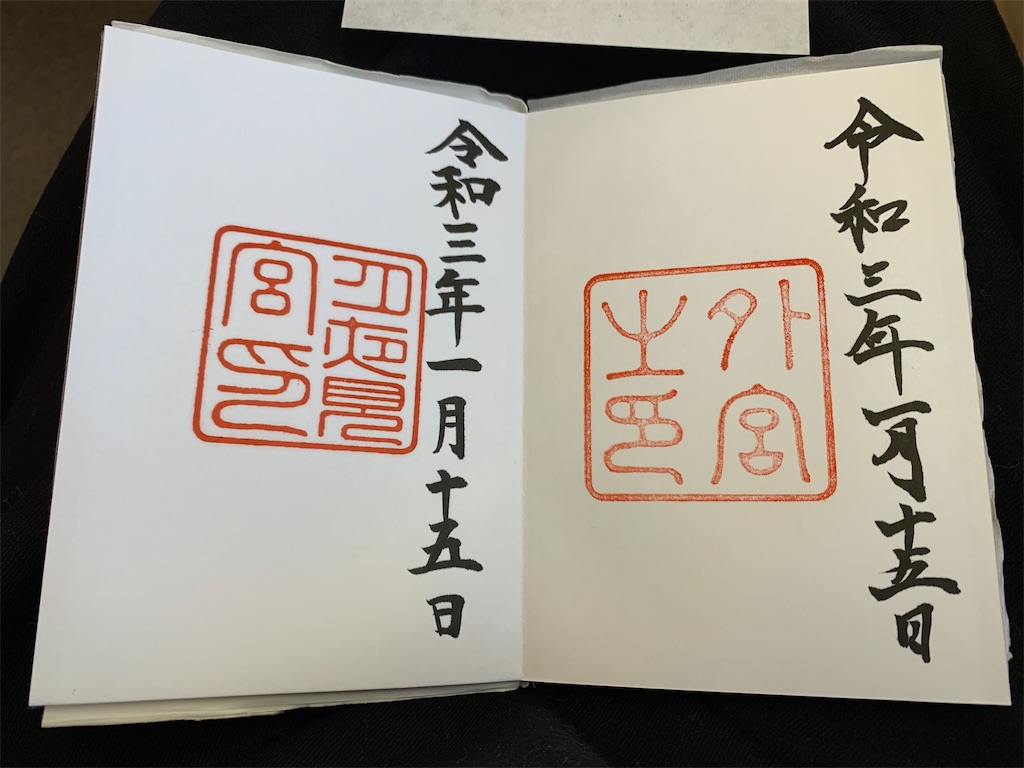 令和三年一月十五日
外宮
之印
令和三年一月十五日
月夜見
宮印